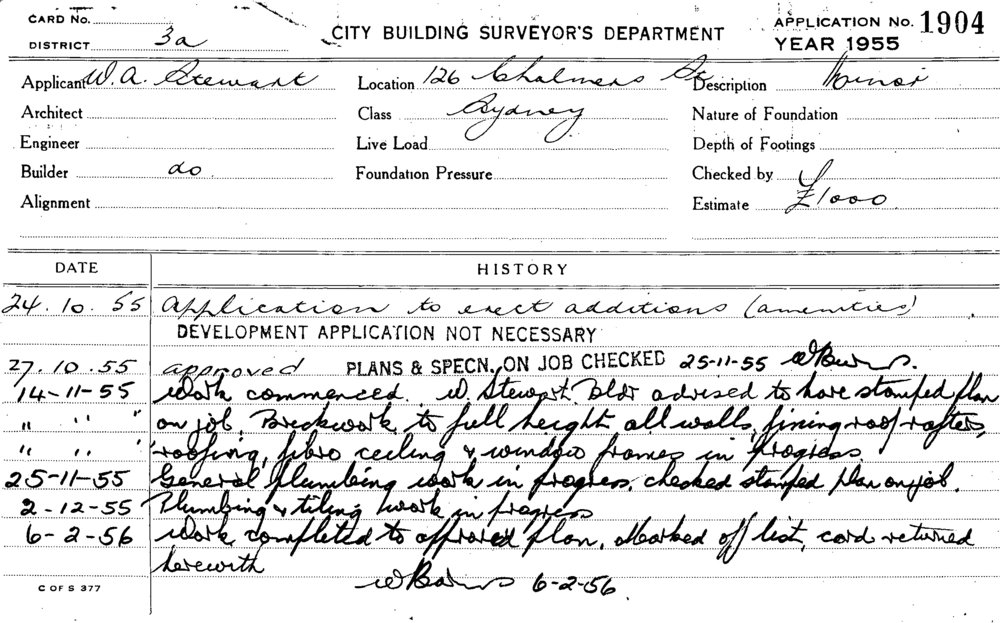 CARD No.
DISTRICT 3a
CITY BUILDING SURVEYOR'S DEPARTMENT
APPLICATION No. 1904
YEAR 1955
Applicant W. A. Stewart Location 126 Chalmers St Description Minor
Architect Class Sydney Nature of Foundation
Engineer Live Load Depth of Footings
Builder do Foundation Pressure Checked by
Alignment Estimate £1000
DATE HISTORY
24.10.55 Application to erect additions (amenities)
DEVELOPMENT APPLICATION NOT NECESSARY
27.10.55 approved PLANS & SPECN. ON JOB CHECKED 25-11-55
14-11-55 Work commenced. W. Stewart. Bldr advised to have stamped plan
" " " on job. Brickwork to full height all walls, fixing roof rafters,
" " " roofing, fibro ceiling & window frames in progress.
25-11-55 General plumbing work in progress, checked stamped plan on job.
2-12-55 Plumbing & tiling work in progress
6-2-56 Work completed to approved plan. Marked off list, card returned
herewith
6-2-56.
C OF S 377